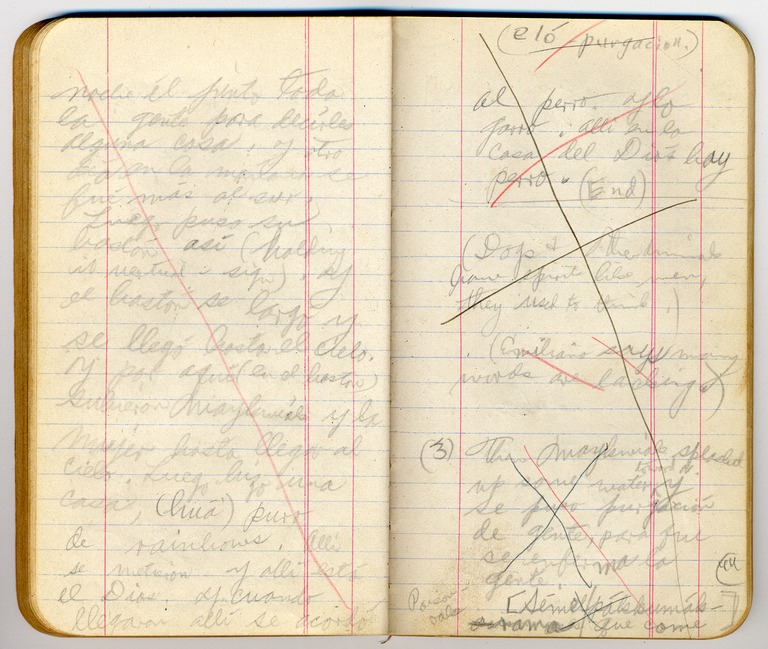 noche él juntó toda
la gente para decirles
alguna cosa, y otro
día en la mañana se
fué más al sur.
Luego puso su
bastón así (holding
it vertical - sign), y
el bastón se largó y
se llegó hasta el cielo.
Y por aquí (en el bastón)
subieron y la
mujer hasta llegar al
cielo. Luego hizo una
casa, (huá) puro
de rainbows. Allí
se metieron y allí está
el Dios. Y cuando
llegaron allí se acordó
(e ló purgación.)
al perro, y lo
jarró. allí en la
casa del Dios hay
perro. (End)
(Dogs & other animals
have spirit like men,
they used to think.)
(Emiliano says many
words are lacking)
(3) Then splashed
up some water, y
se puso purgación
de gente, para que
se enferma la
gente.
44
Poison
que come